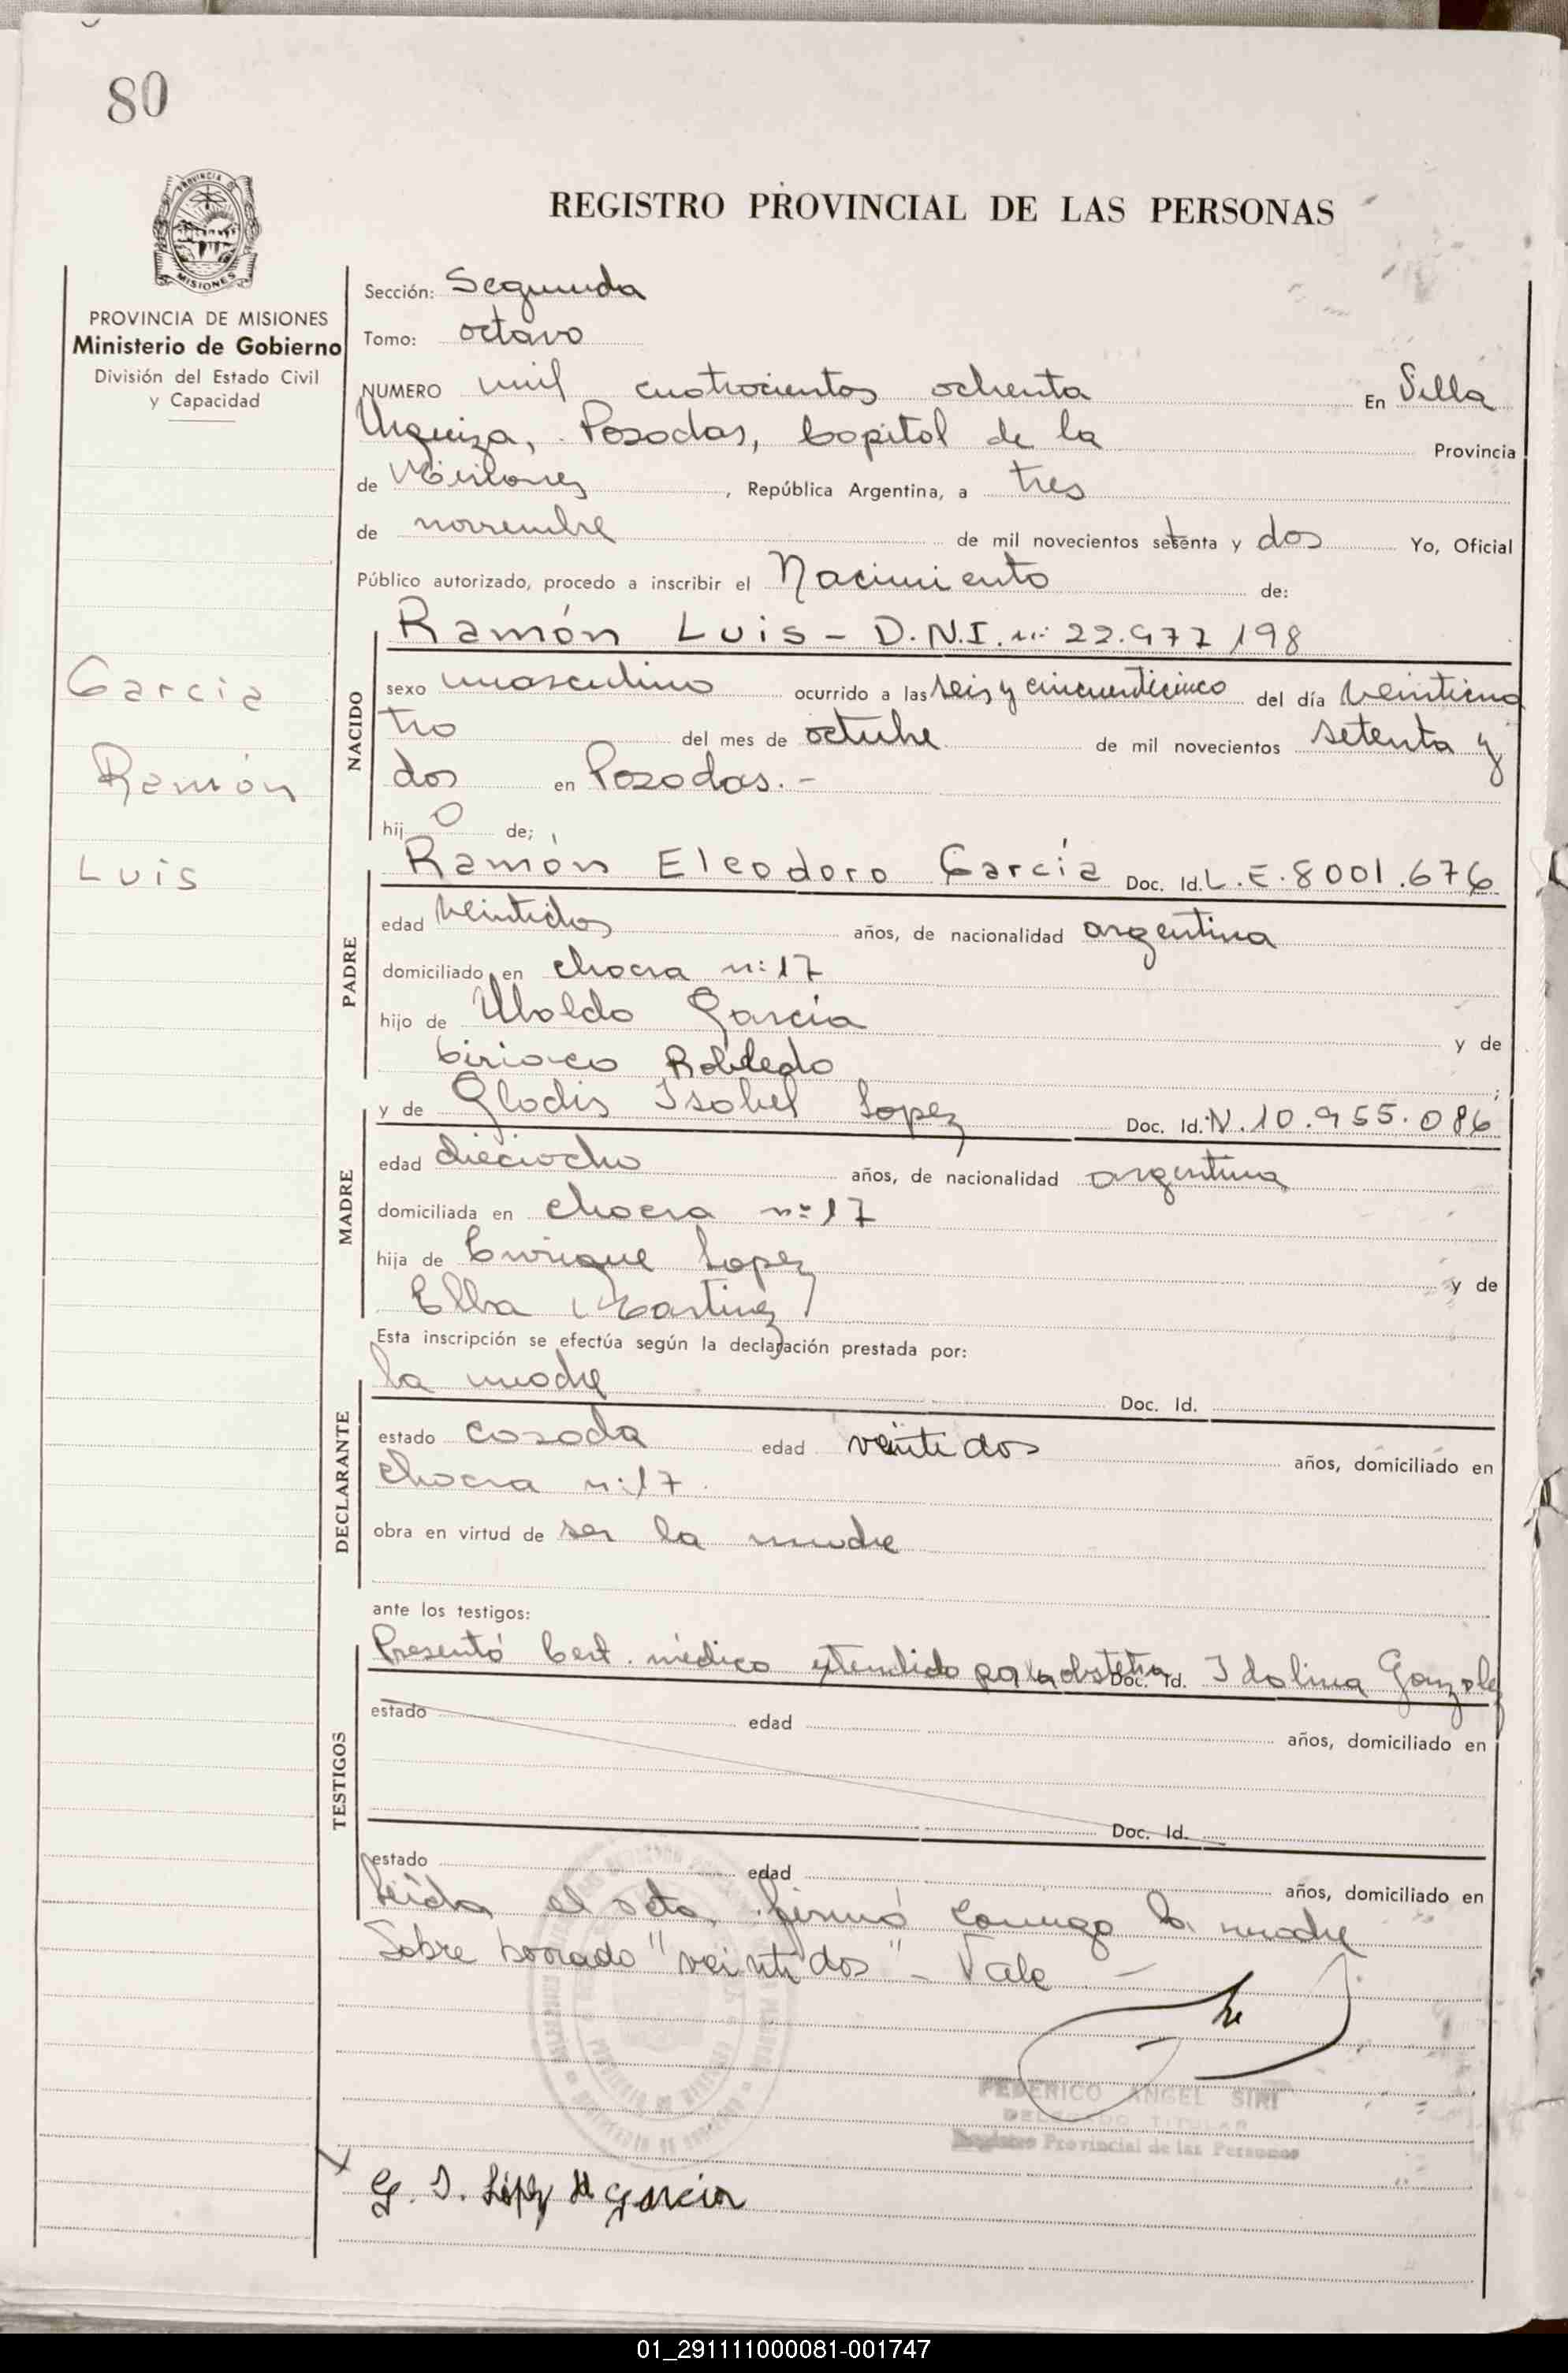 80
PROVINCIA DE
MISIONES
REGISTRO PROVINCIAL DE LAS PERSONAS
PROVINCIA DE MISIONES
Ministerio de Gobierno
División del Estado Civil
y Capacidad
Garcia
Ramón
Luis
Sección: Segunda
Tomo: octavo
NUMERO mil cuatrocientos ochenta En Villa
Urquiza, Posadas, Capital de la Provincia
de Misiones, República Argentina, a tres
de noviembre de mil novecientos setenta y dos Yo, Oficial
Público autorizado, procedo a inscribir el Nacimiento de:
NACIDO
Ramón Luis - D.N.I. nº 22.977.198
sexo masculino ocurrido a las seis y cincuenticinco del día veinticua
tro del mes de octubre de mil novecientos setenta y
dos en Posadas.-
hij o de;
PADRE
Ramón Eleodoro García Doc. Id. L.E. 8001.676
edad veintidos años, de nacionalidad argentina
domiciliado en chacra nº 17
hijo de Ubaldo García y de
Ciriaca Robledo;
MADRE
y de Gladis Isabel Lopez Doc. Id. N. 10.955.086
edad dieciocho años, de nacionalidad argentina
domiciliada en chacra nº 17
hija de Enrique Lopez y de
Elba Martinez
Esta inscripción se efectúa según la declaración prestada por:
DECLARANTE
la madre Doc. Id.
estado casada edad veintidos años, domiciliado en
chacra nº 17
obra en virtud de ser la madre
ante los testigos:
TESTIGOS
Presentó Cert. médico extendido por la obstetra Doc. Id. Idolina Gonzalez
estado edad años, domiciliado en
Doc. Id.
estado edad años, domiciliado en
Leída el acta, firmó conmigo la madre
Sobre borrado "veintidos" - Vale -
FEDERICO ANGEL SIRI
DELEGADO TITULAR
Registro Provincial de las Personas
G. I. López de García
01_291111000081-001747